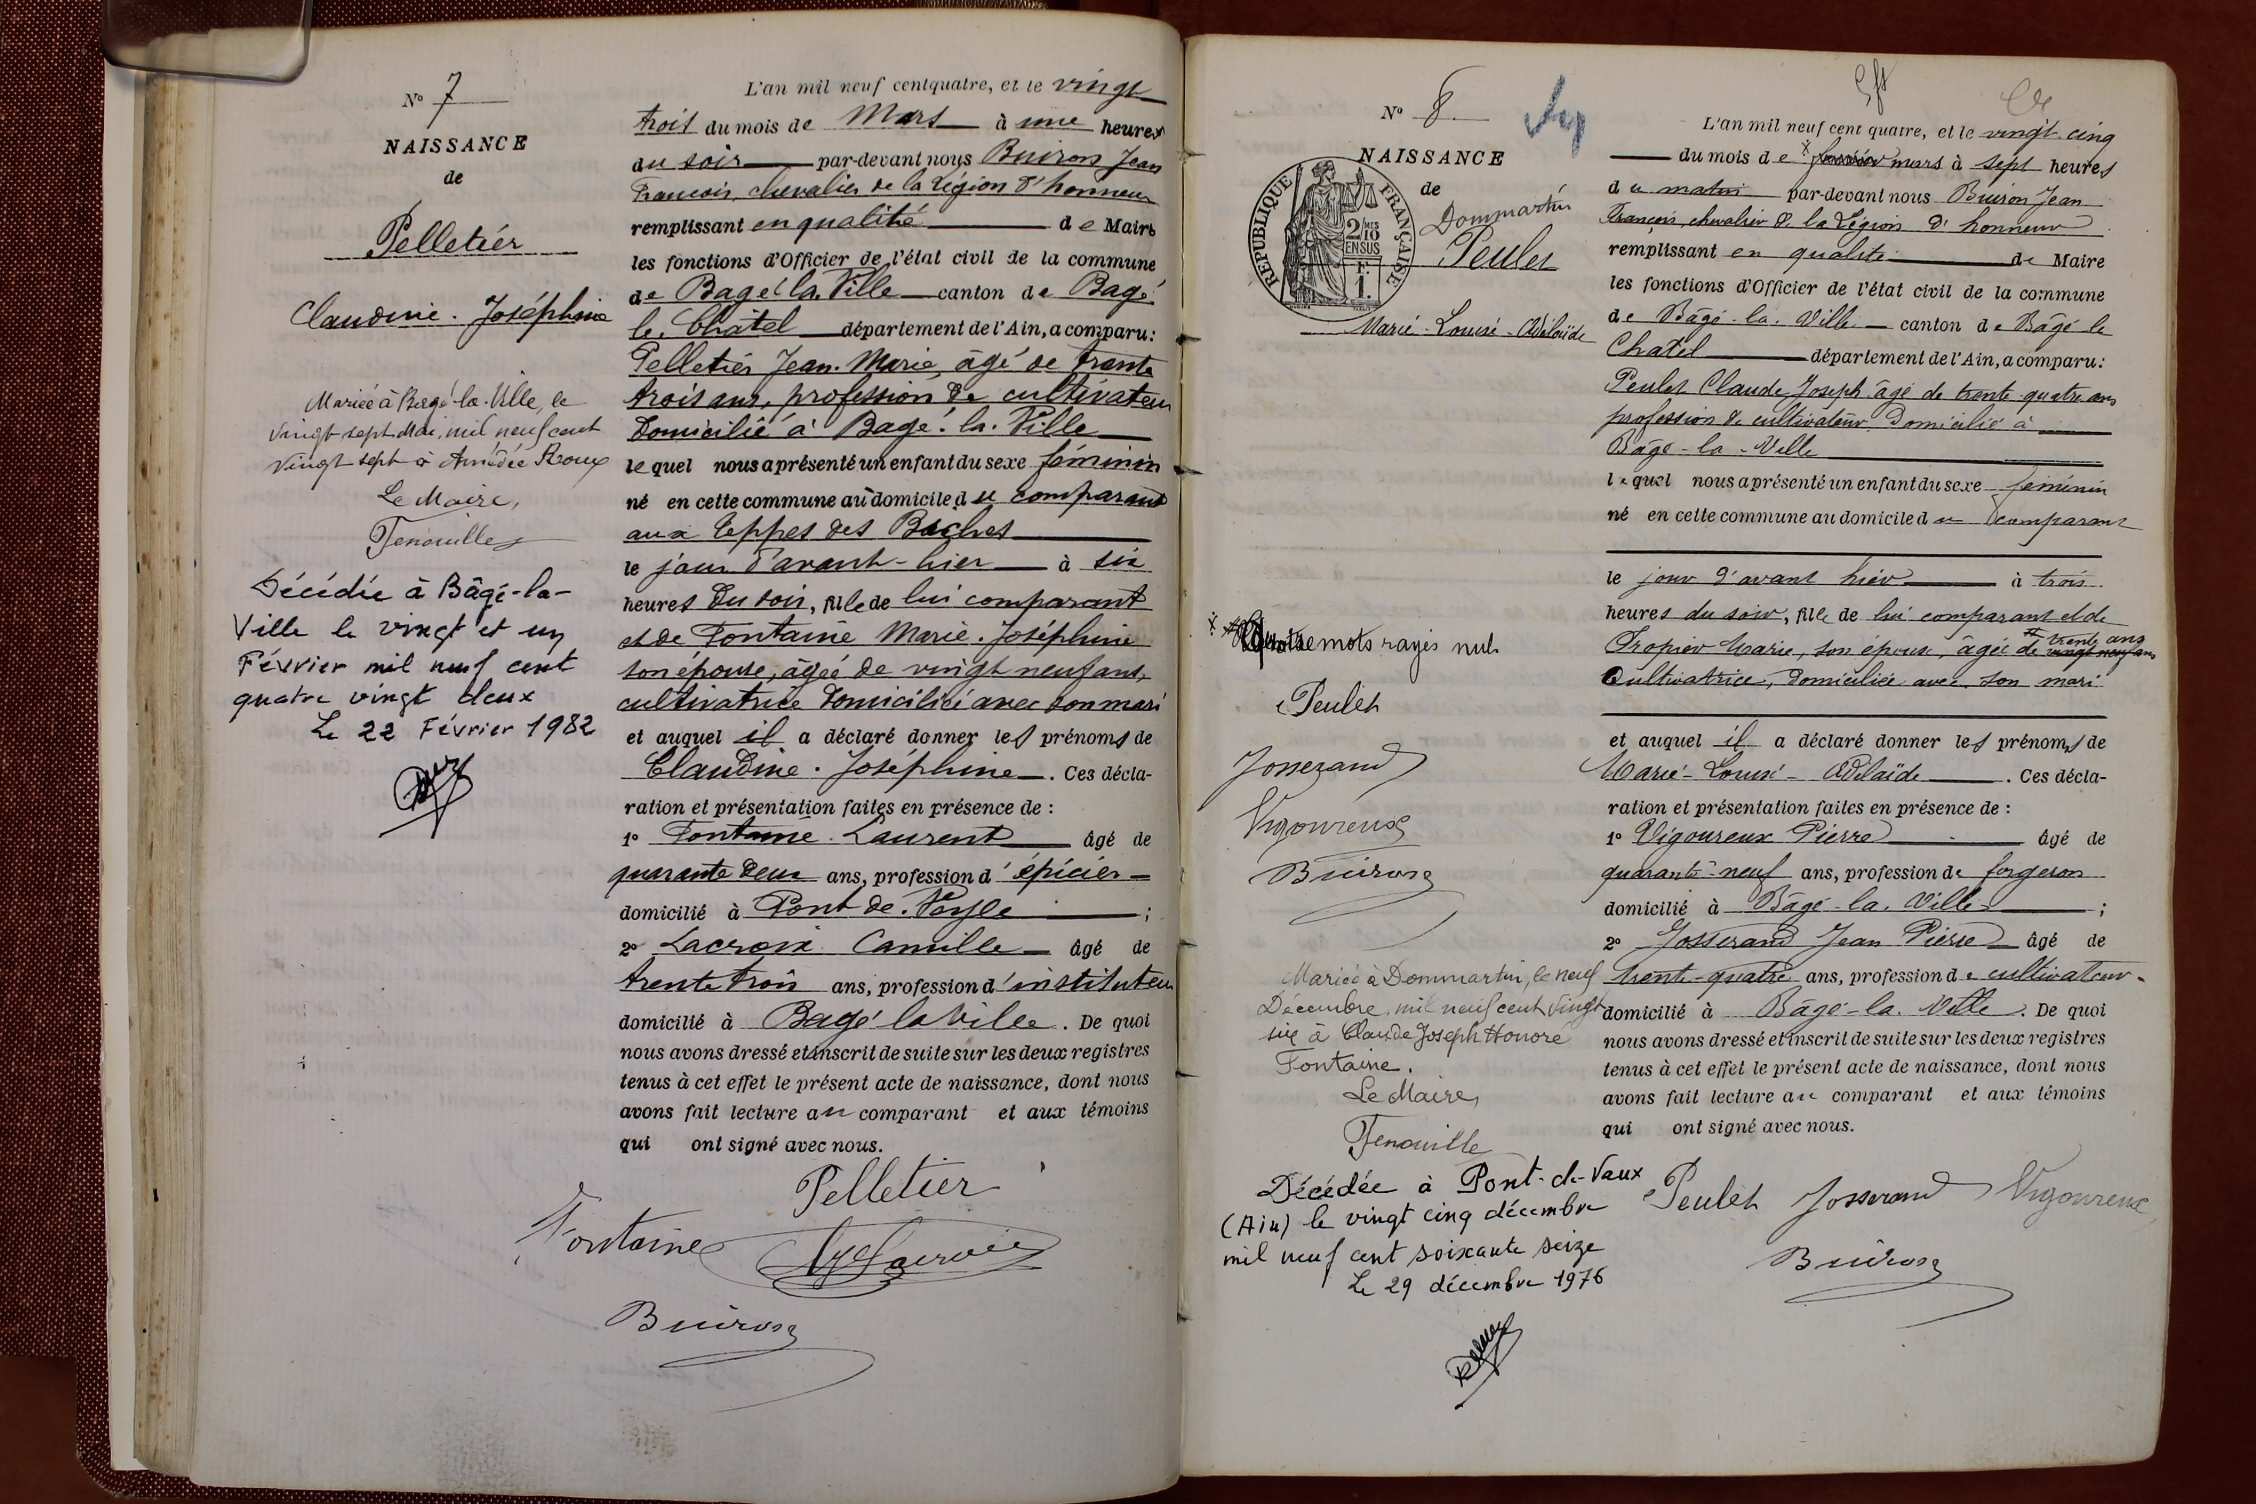 N° 7
NAISSANCE
de
Pelletier
Claudine. Joséphine
Mariée à Bagé-la-Ville, le
vingt sept Mai, mil neuf cent
vingt sept à Amédée Roux
Le Maire,
Fenouille
Décédée à Bâgé-la-
Ville le vingt et un
Février mil neuf cent
quatre vingt deux
Le 22 Février 1982
L'an mil neuf cent quatre, et le vingt
trois du mois de Mars à une heure
du soir par-devant nous Buiron Jean
Francois, chevalier de la Légion d'honneur
remplissant en qualité de Maire
les fonctions d'Officier de l'état civil de la commune
de Bagé la Ville canton de Bagé
le Châtel département de l'Ain, a comparu:
Pelletier Jean. Marie, âgé de trente
trois ans, profession de cultivateur
domicilié à Bagé. la. Ville
lequel nous a présenté un enfant du sexe féminin
né en cette commune au domicile du comparant
aux Teppes des Baches
le jour d'avant-hier à six
heures du soir, fille de lui comparant
et de Fontaine Marie. Joséphine
son épouse, âgée de vingt neuf ans,
cultivatrice domiciliée avec son mari
et auquel il a déclaré donner les prénoms de
Claudine. Joséphine. Ces décla-
ration et présentation faites en présence de :
1° Fontaine Laurent âgé de
quarante deux ans, profession d'épicier
domicilié à Pont de. Veyle ;
2° Lacroix Camille âgé de
trente trois ans, profession d'instituteur
domicilié à Bagé la Ville. De quoi
nous avons dressé et inscrit de suite sur les deux registres
tenus à cet effet le présent acte de naissance, dont nous
avons fait lecture au comparant et aux témoins
qui ont signé avec nous.
Pelletier
Fontaine Lacroix
Buiron
N° 8
NAISSANCE
de
Dommartin
Peulet
Marie-Louise-Adélaïde
RÉPUBLIQUE FRANÇAISE
2/10 MES
EN SUS
F.
1.
Quatre mots rayés nuls
Peulet
Josserand
Vigoureux
Buiron
Mariée à Dommartin, le neuf
Décembre, mil neuf cent vingt
six à Claude Joseph Honoré
Fontaine.
Le Maire,
Fenouille
Décédée à Pont-de-Vaux
(Ain) le vingt cinq décembre
mil neuf cent soixante seize
Le 29 décembre 1976
L'an mil neuf cent quatre, et le vingt-cinq
du mois de mars à sept heures
du matin par-devant nous Buiron Jean
François, chevalier de la Légion d'honneur
remplissant en qualité de Maire
les fonctions d'Officier de l'état civil de la commune
de Bâgé-la-Ville canton de Bâgé le
Chatel département de l'Ain, a comparu:
Peulet Claude Joseph âgé de trente-quatre ans
profession de cultivateur Domicilié à
Bâgé-la-Ville
lequel nous a présenté un enfant du sexe féminin
né en cette commune au domicile du comparant
le jour d'avant hier à trois
heures du soir, fille de lui comparant et de
trente ans
Marie, son épouse, âgée de vingt neuf ans
Cultivatrice, domiciliée avec son mari
et auquel il a déclaré donner les prénoms de
Marie-Louise-Adélaïde. Ces décla-
ration et présentation faites en présence de :
1° Vigoureux Pierre âgé de
quarante-neuf ans, profession de forgeron
domicilié à Bâgé-la-Ville ;
2° Josserand Jean Pierre âgé de
trente-quatre ans, profession de cultivateur
domicilié à Bâgé-la-Ville. De quoi
nous avons dressé et inscrit de suite sur les deux registres
tenus à cet effet le présent acte de naissance, dont nous
avons fait lecture au comparant et aux témoins
qui ont signé avec nous.
Peulet Josserand Vigoureux
Buiron